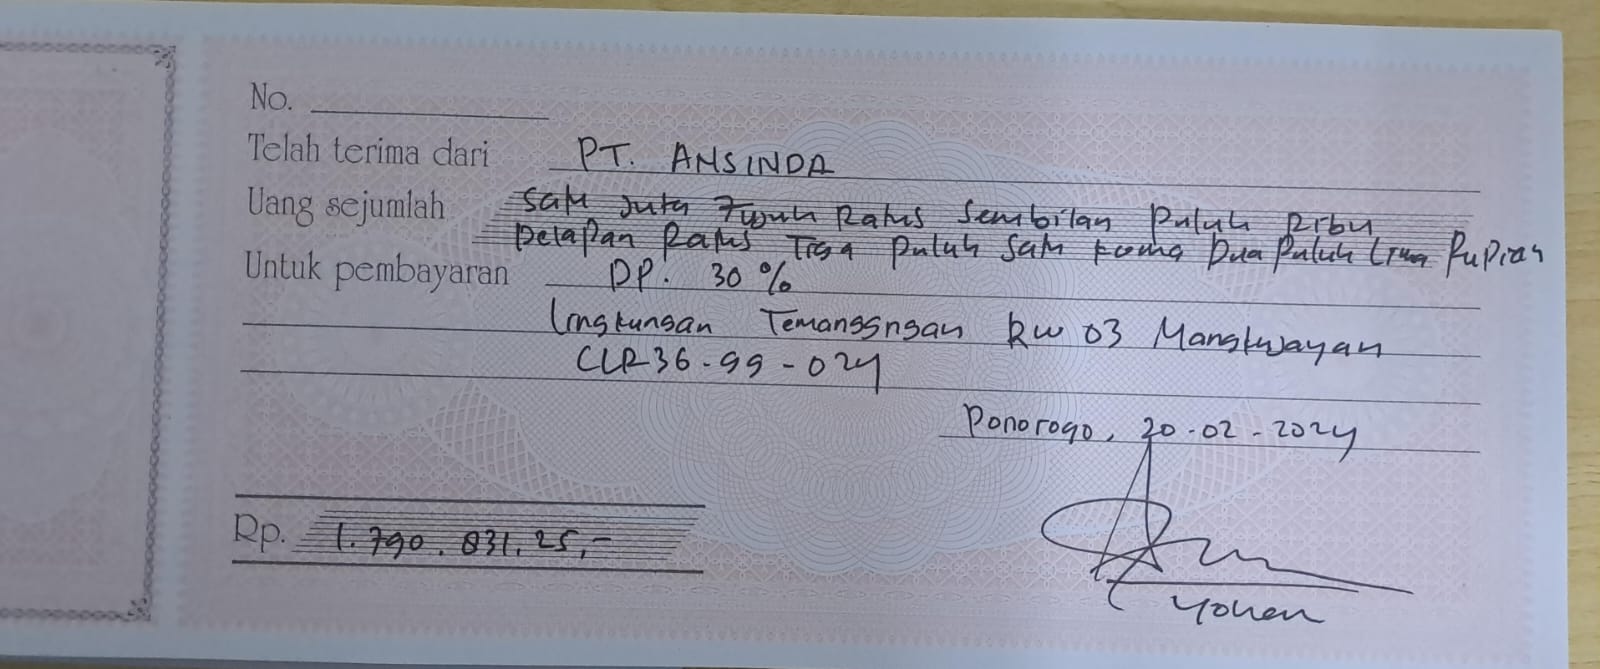 No.
Telah terima dari PT. ANSINDA
Uang sejumlah Satu Juta Tujuh Ratus Sembilan Puluh Ribu
Delapan Ratus Tiga Puluh Satu Koma Dua Puluh Lima Rupiah
Untuk pembayaran DP. 30 %
Lingkungan Temanggngan RW 03 Mangkujayan
CLR36-99-024
Ponorogo, 20-02-2024
Rp. 1.790.831,25,-
Yohen